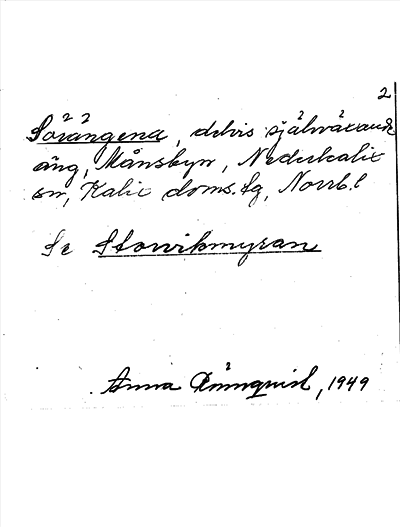 2
Sörängena, delvis självväxande
äng, Månsbyn, Nederkalix
sn, Kalix doms.tg, Norrb.l
Se Storvikmyran
Anna Rönnquist, 1949